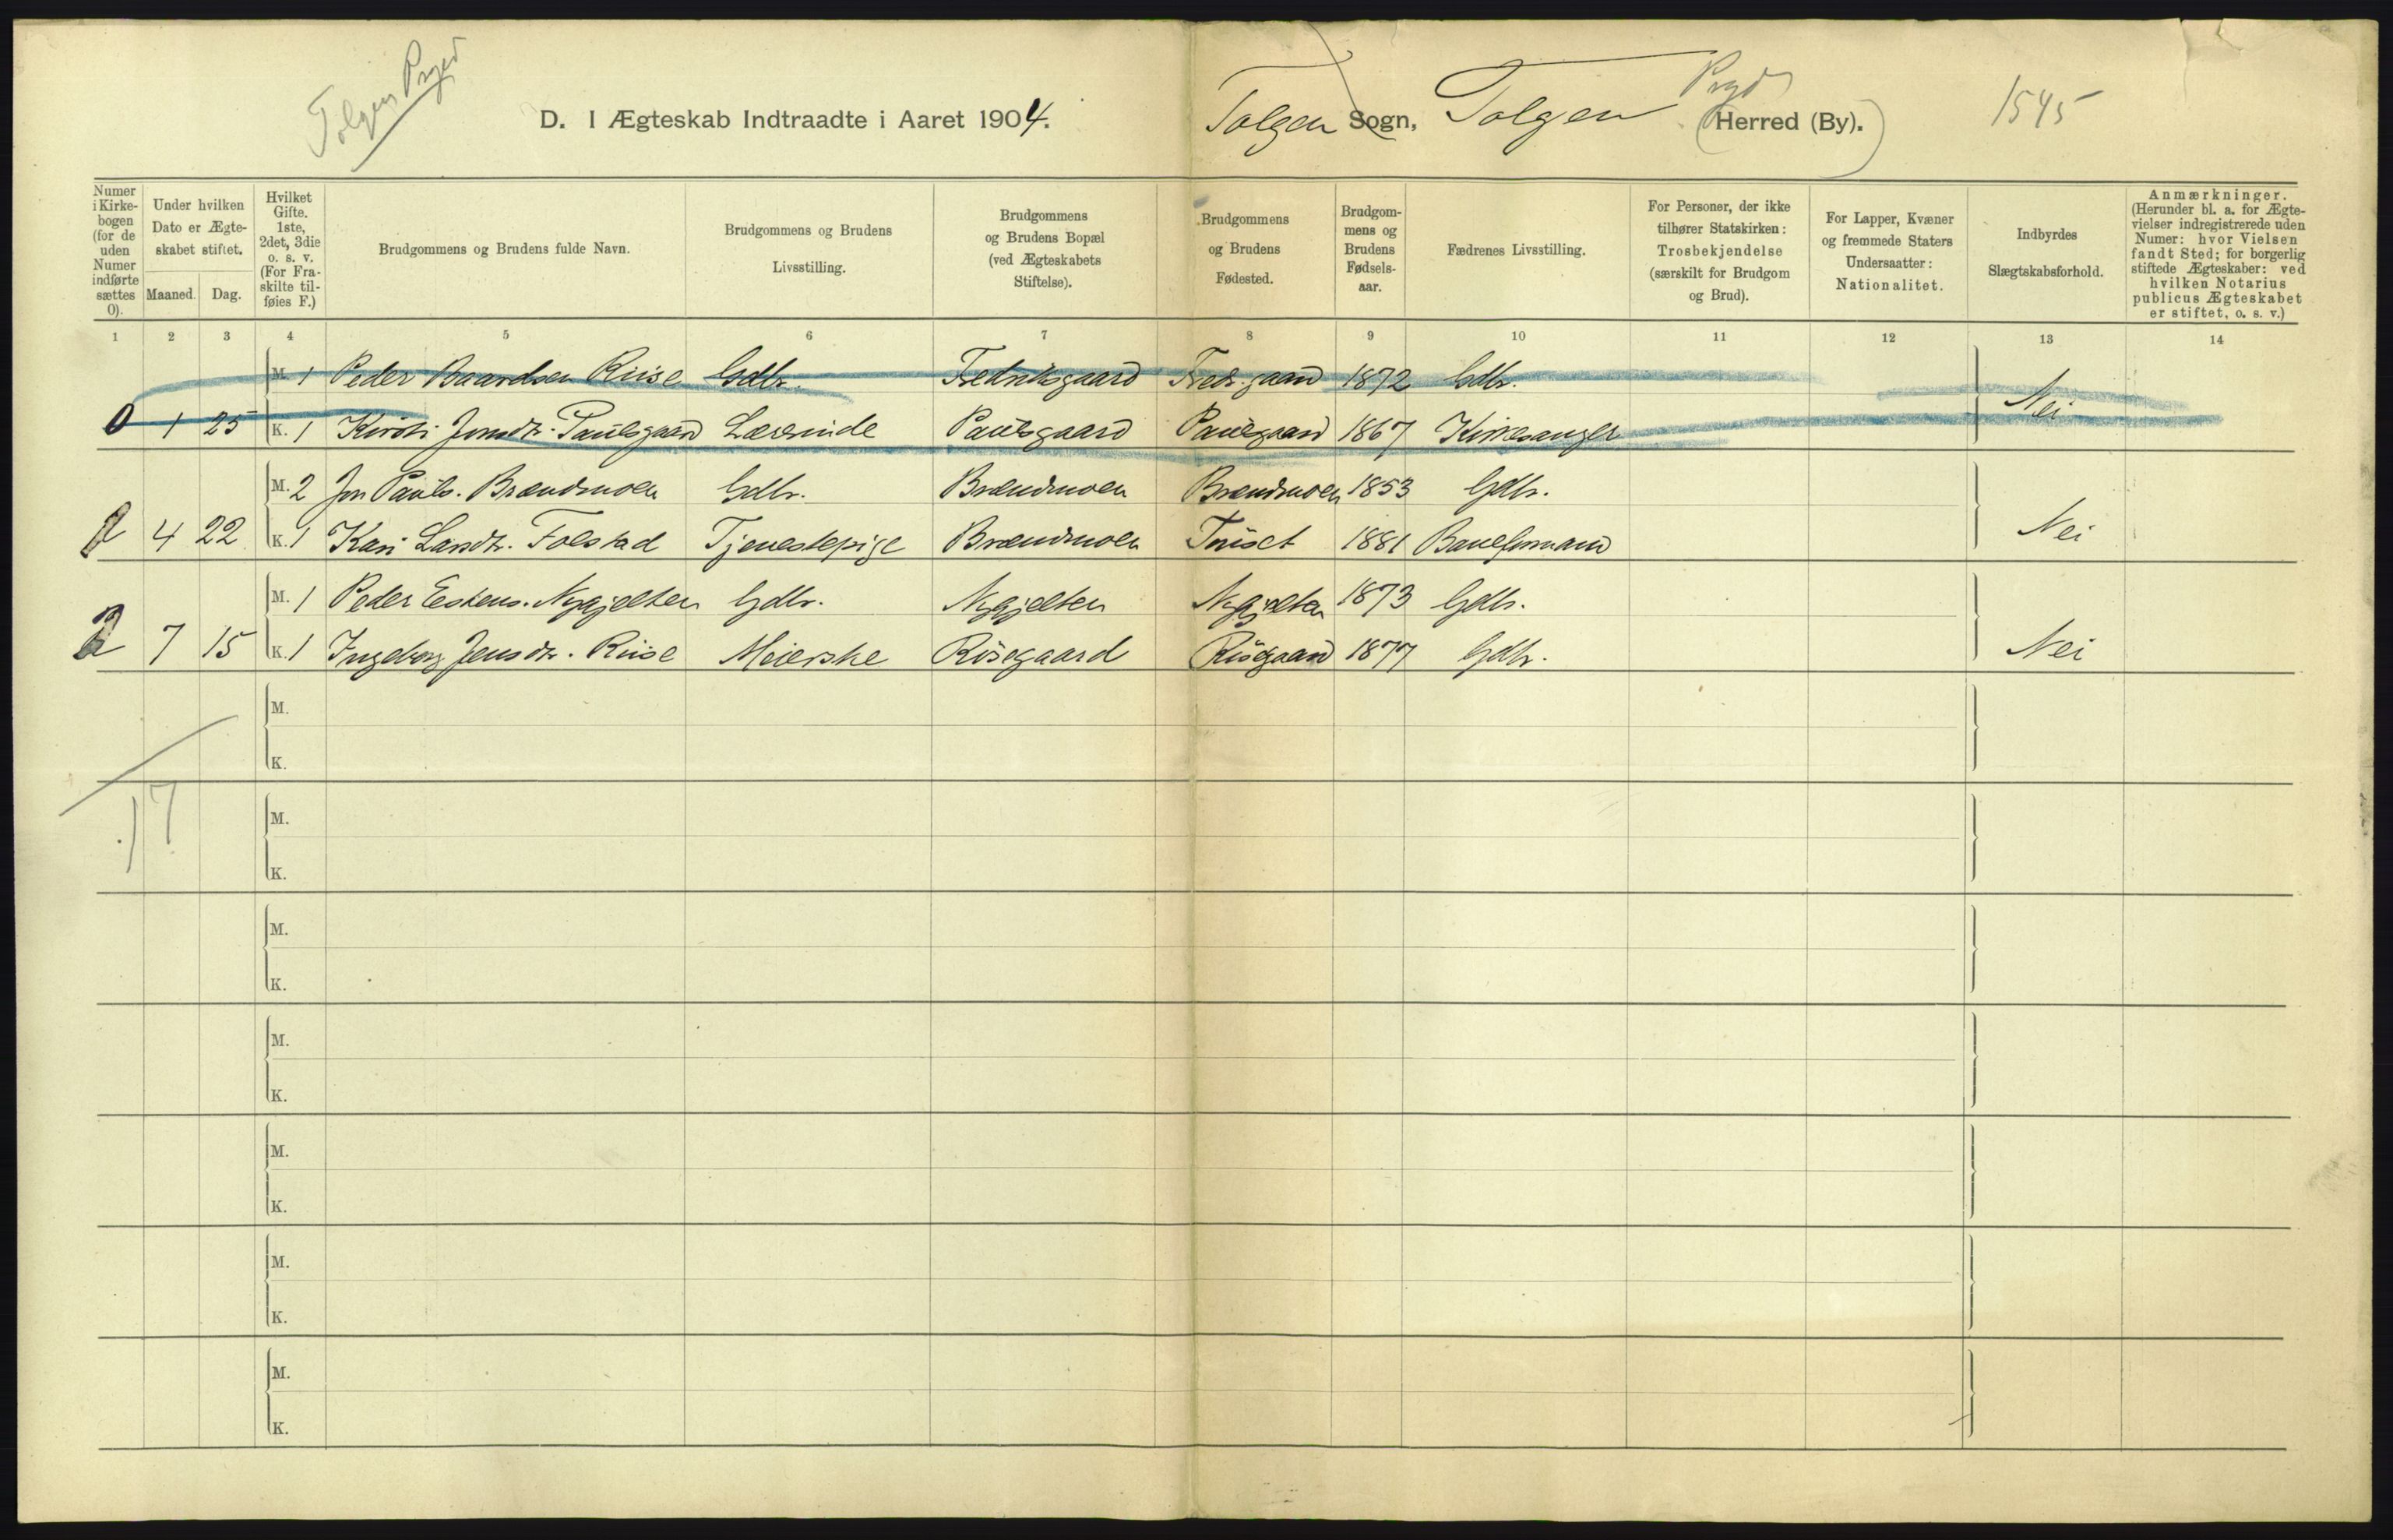 Tolgen Prgjd
D. I Ægteskab Indtraadte i Aaret 1904. Tolgen Sogn, Tolgen Prgjd (Herred (By).) 1545
Numer i Kirkebogen (for de uden Numer indførte sættes 0).
Under hvilken Dato er Ægteskabet stiftet.
Maaned. Dag.
Hvilket Gifte. 1ste, 2det, 3die o. s. v. (For Fraskilte tilføies F.)
Brudgommens og Brudens fulde Navn.
Brudgommens og Brudens Livsstilling.
Brudgommens og Brudens Bopæl (ved Ægteskabets Stiftelse).
Brudgommens og Brudens Fødested.
Brudgommens og Brudens Fødselsaar.
Fædrenes Livsstilling.
For Personer, der ikke tilhører Statskirken: Trosbekjendelse (særskilt for Brudgom og Brud).
For Lapper, Kvæner og fremmede Staters Undersaatter: Nationalitet.
Indbyrdes Slægtskabsforhold.
Anmærkninger. (Herunder bl. a. for Ægtevielser indregistrerede uden Numer: hvor Vielsen fandt Sted; for borgerlig stiftede Ægteskaber: ved hvilken Notarius publicus Ægteskabet er stiftet, o. s. v.)
1 2 3 4 5 6 7 8 9 10 11 12 13 14
M. 1 Peder Baardsen Riise Gdbr. Fredriksgaard Fredr.gaard 1872 Gdbr.
0 1 25 K. 1 Kirsti Jonsdtr. Paulsgaard Lærerinde Paulsgaard Paulsgaard 1867 Kirkesanger Nei
M. 2 Jon Pauls. Brændmoen Gdbr. Brændmoen Brændmoen 1853 Gdbr.
4 22 K. 1 Kari Larsdtr. Folstad Tjenestepige Brændmoen Tuiset 1881 Baneformand Nei
M. 1 Peder Eskens. Nygjelten Gdbr. Nygjelten Nygjelten 1873 Gdbr.
2 7 15 K. 1 Ingeborg Jensdtr. Riise Meierske Risegaard Risegaard 1877 Gdbr. Nei
M.
K.
17
M.
K.
M.
K.
M.
K.
M.
K.
M.
K.
M.
K.